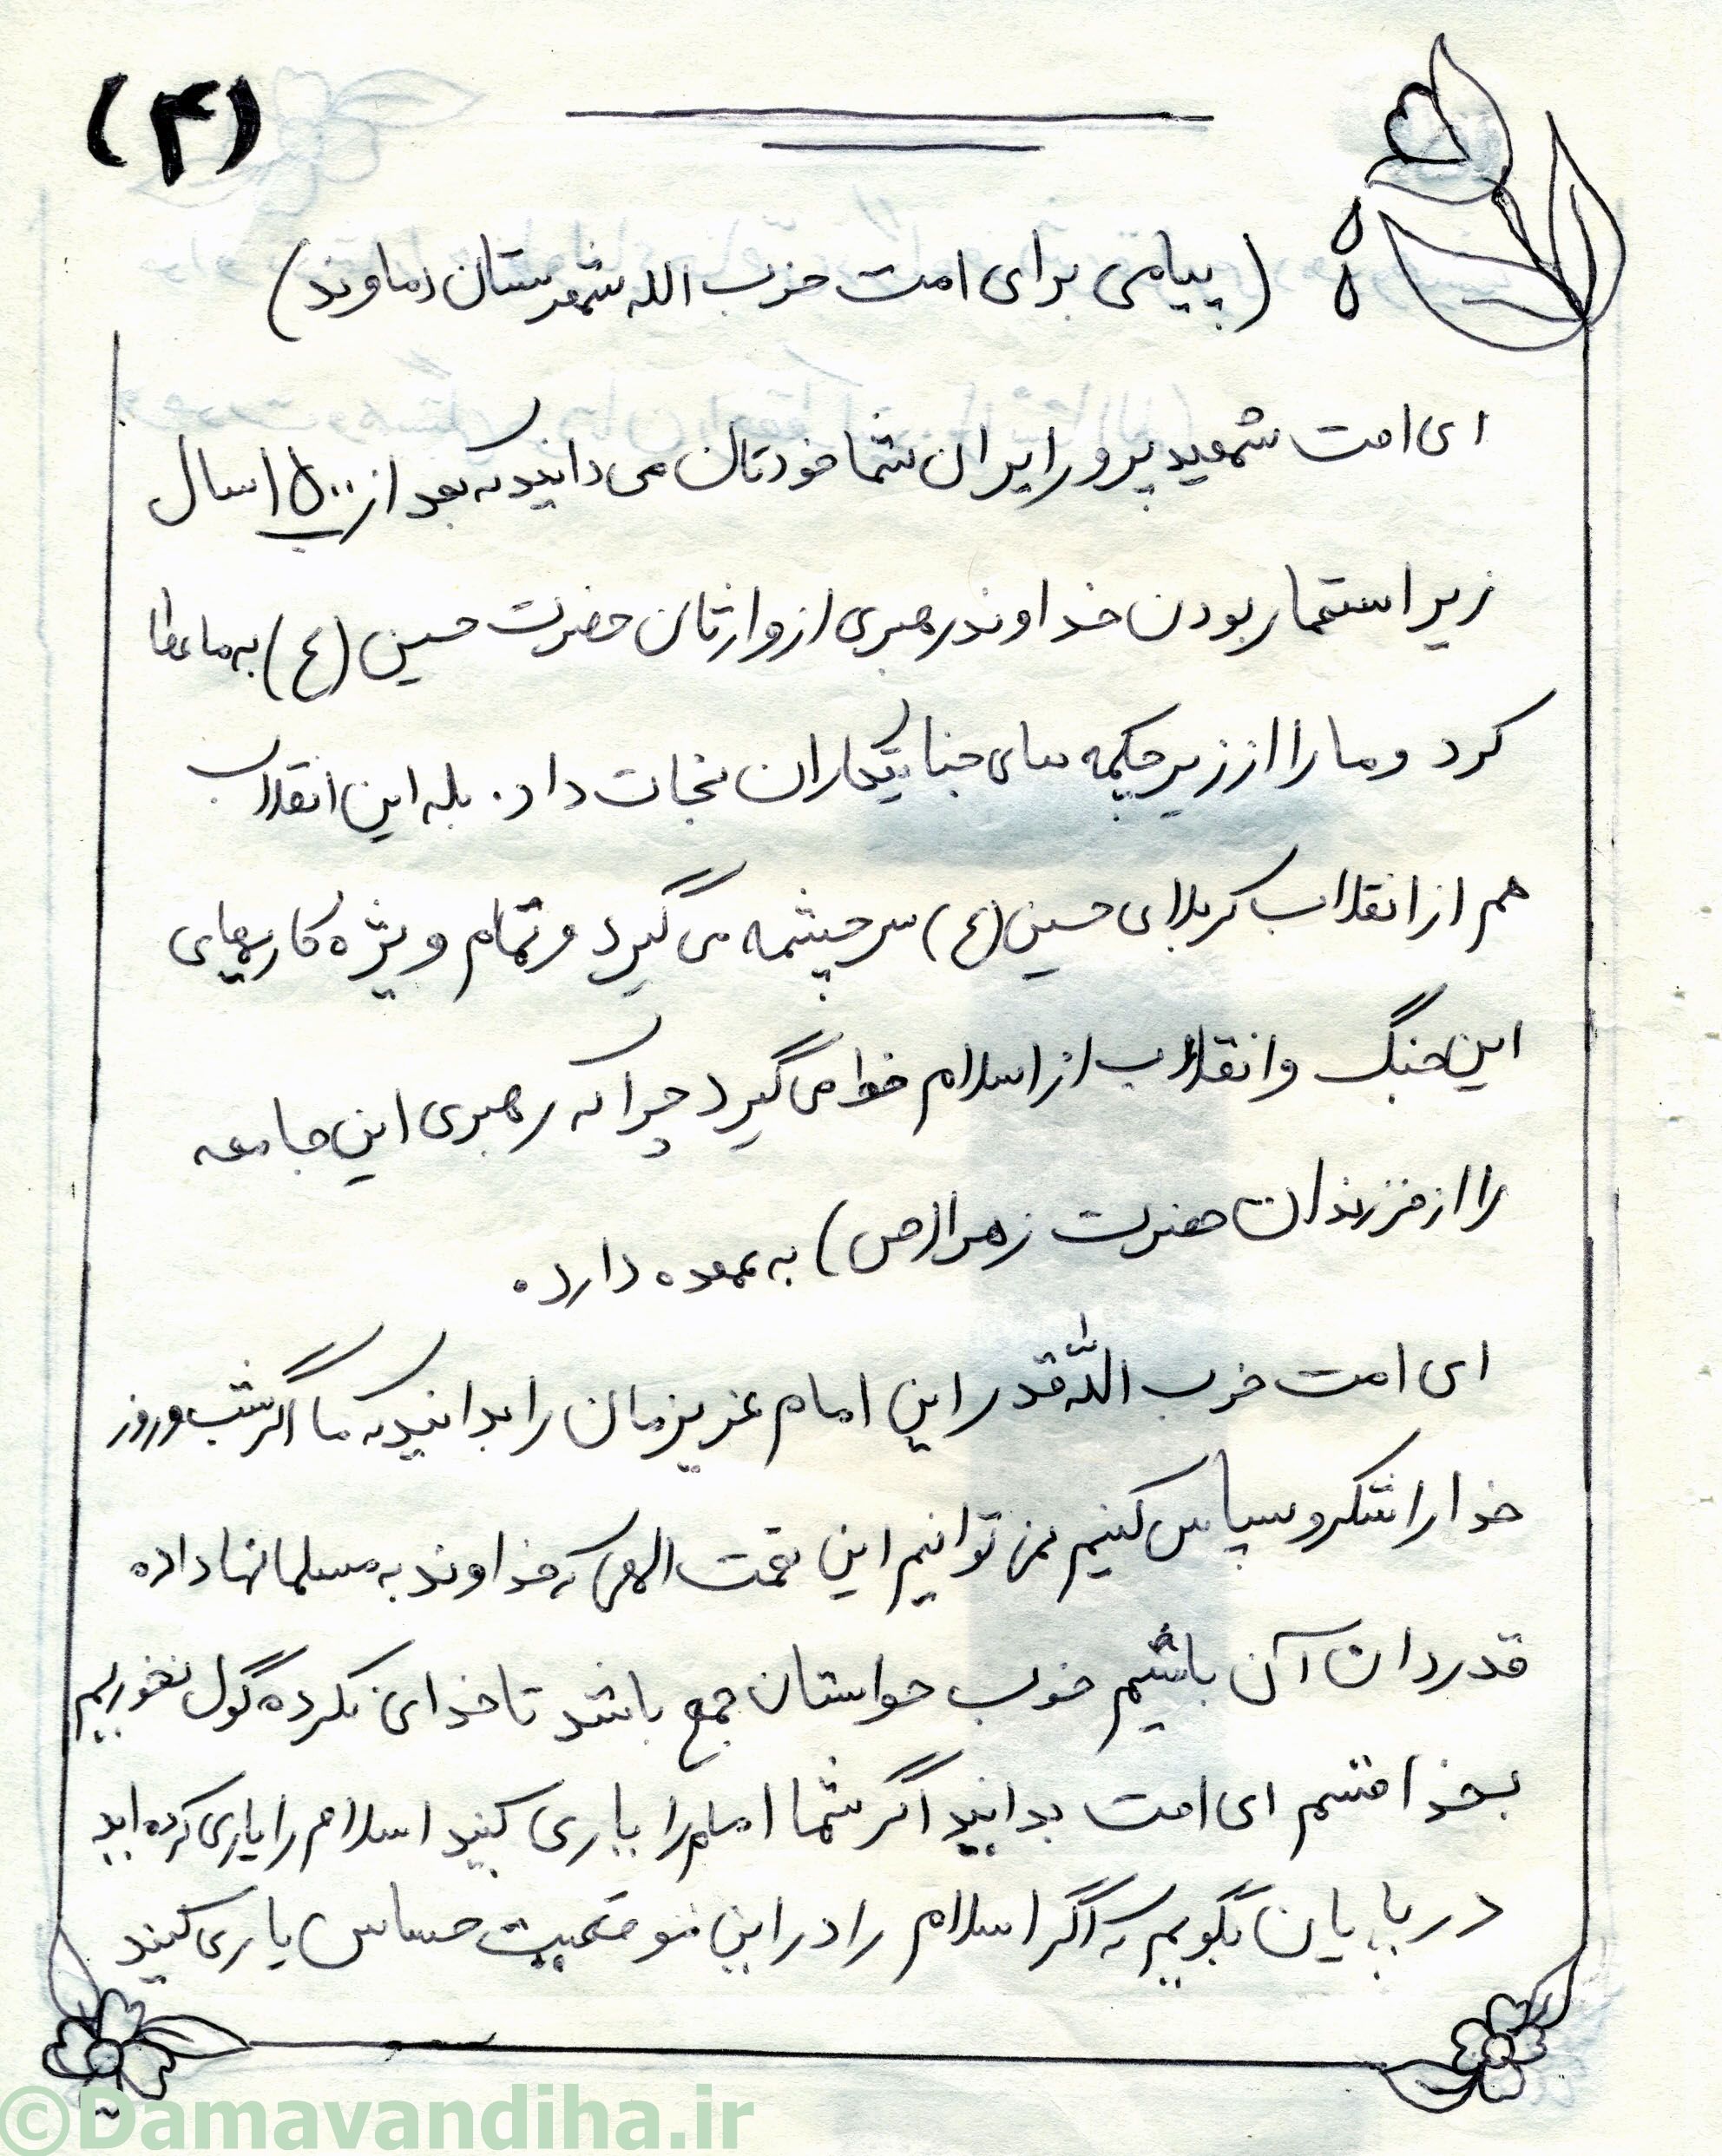 (۴)
(پیامی برای امت حزب الله شهرستان دماوند)
ای امت شهید پرور ایران شما خودتان می دانید که بعد از ۱۵۰۰ سال
زیر استعمار بودن خداوند رهبری از وارثان حضرت حسین (ع) به ما عطا
کرد و ما را از زیر چکمه های جنایتکاران نجات داد. بله این انقلاب
هم از انقلاب کربلای حسین (ع) سرچشمه می گیرد و تمام ویژه کاریهای
این جنگ و انقلاب از اسلام خط می گیرد چرا که رهبری این جامعه
را از فرزندان حضرت زهرا (ص) به عهده دارد.
ای امت حزب اللّه قدر این امام عزیزمان را بدانید که ما اگر شب و روز
خدا را شکر و سپاس کنیم نمی توانیم این نعمت الهی که خداوند به مسلمانها داده
قدردان آن باشیم خوب حواستان جمع باشد تا خدای نکرده گول نخوریم
بخدا قسم ای امت بدانید اگر شما امام را یاری کنید اسلام را یاری کرده اید
در پایان بگویم که اگر اسلام را در این موقعیت حساس یاری کنید
©Damavandiha.ir